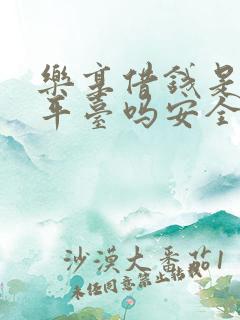 樂享借錢是
平臺嗎安全
沙漠大番茄1
未经同意禁止转载